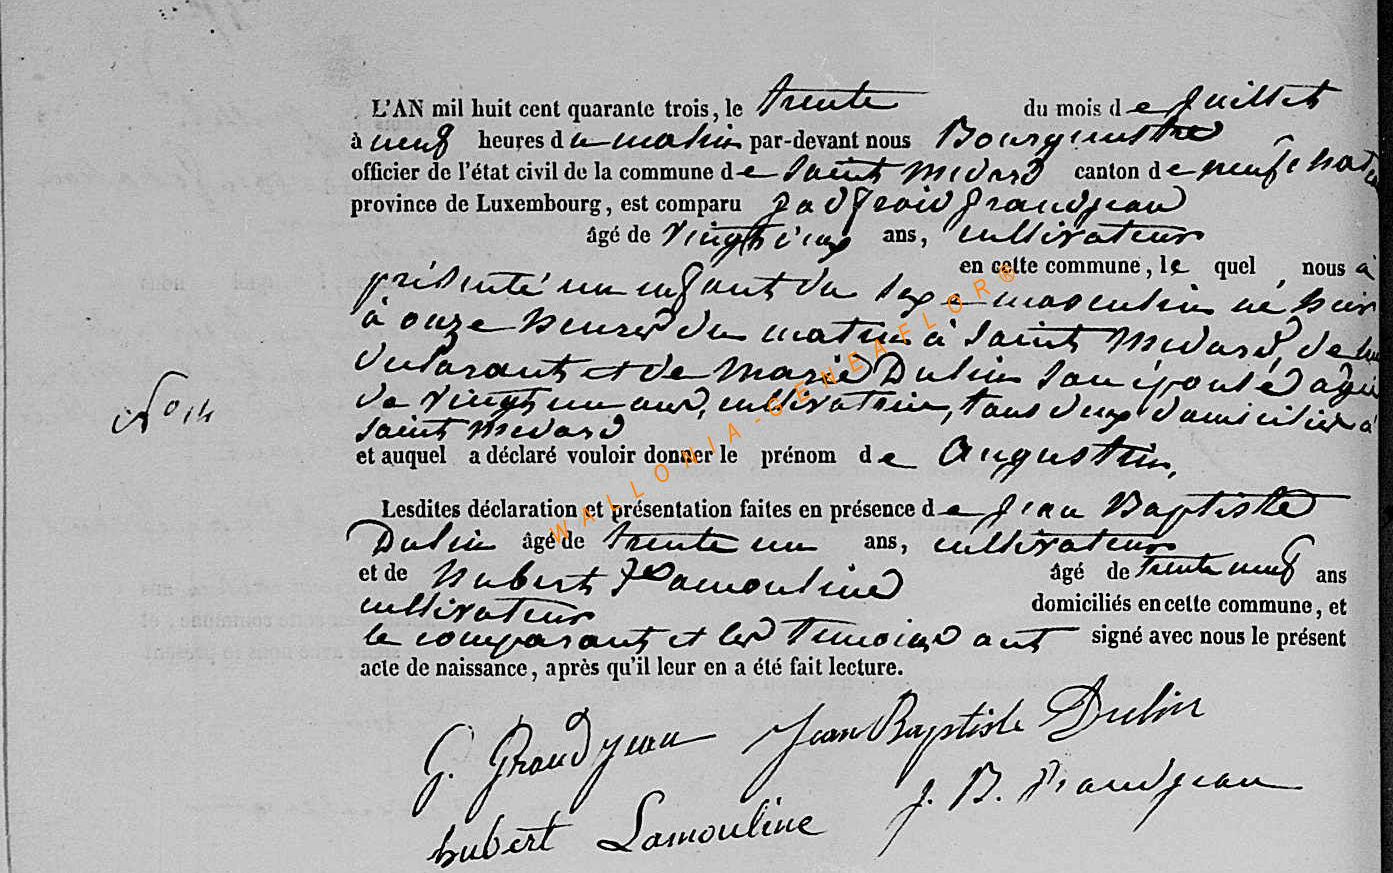 L'AN mil huit cent quarante trois, le trente du mois de Juillet
à neuf heures du matin par-devant nous Bourgmestre
officier de l'état civil de la commune de Saint Medard canton de neufchateau
province de Luxembourg, est comparu Grandjean
âgé de ans, cultivateur
en cette commune, le quel nous à
présenté un enfant du sexe masculin né hier
à onze heures du matin à Saint Medard, de lui
declarant et de Marie Dulin son épouse agée
de vingt un ans, cultivatrice, tous deux domiciliés à
Saint Medard
et auquel a déclaré vouloir donner le prénom de Augustin,
N° 14
Lesdites déclaration et présentation faites en présence de Jean Baptiste
Dulin âgé de trente un ans, cultivateur
et de hubert Lamouline âgé de trente neuf ans
cultivateur domiciliés en cette commune, et
le comparant et les temoins ont signé avec nous le présent
acte de naissance, après qu'il leur en a été fait lecture.
G. Grandjean Jean Baptiste Dulin
hubert Lamouline J. B. Grandjean
WALLONIA-GENEAFLOR®